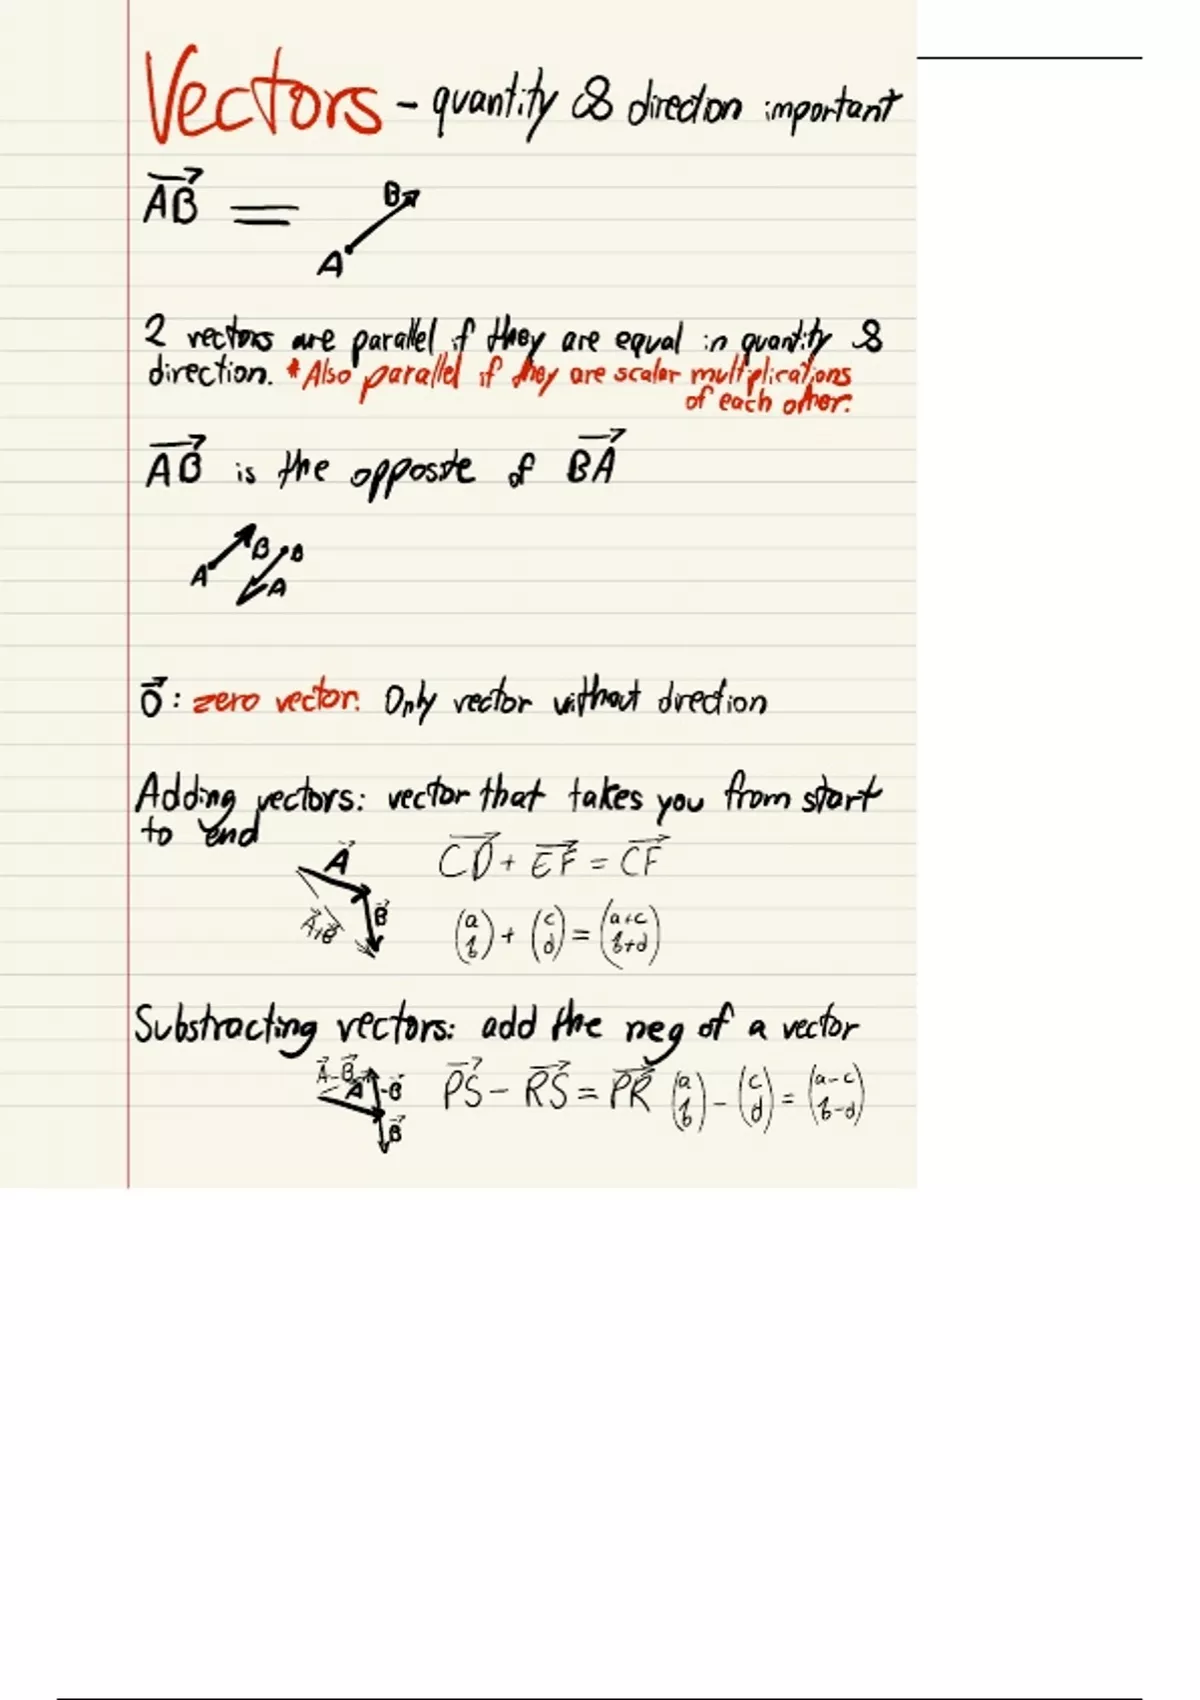 Vectors - quantity & direction important
AB⃗ = A B
2 vectors are parallel if they are equal in quantity &
direction. *Also parallel if they are scalar multiplications
of each other.
AB⃗ is the opposite of BA⃗
A B B A
0⃗ : zero vector. Only vector without direction
Adding vectors: vector that takes you from start
to end
A⃗ B⃗ A⃗+B⃗
CD⃗ + EF⃗ = CF⃗
(a b) + (c d) = (a+c b+d)
Substracting vectors: add the neg of a vector
A⃗-B⃗ A⃗ -B⃗ B⃗
PS⃗ - RS⃗ = PR⃗ (a b) - (c d) = (a-c b-d)